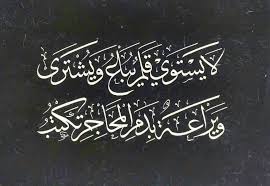 لا يستوي قلم يباع ويشترى
ويراعة بدم المحاجر تكتب